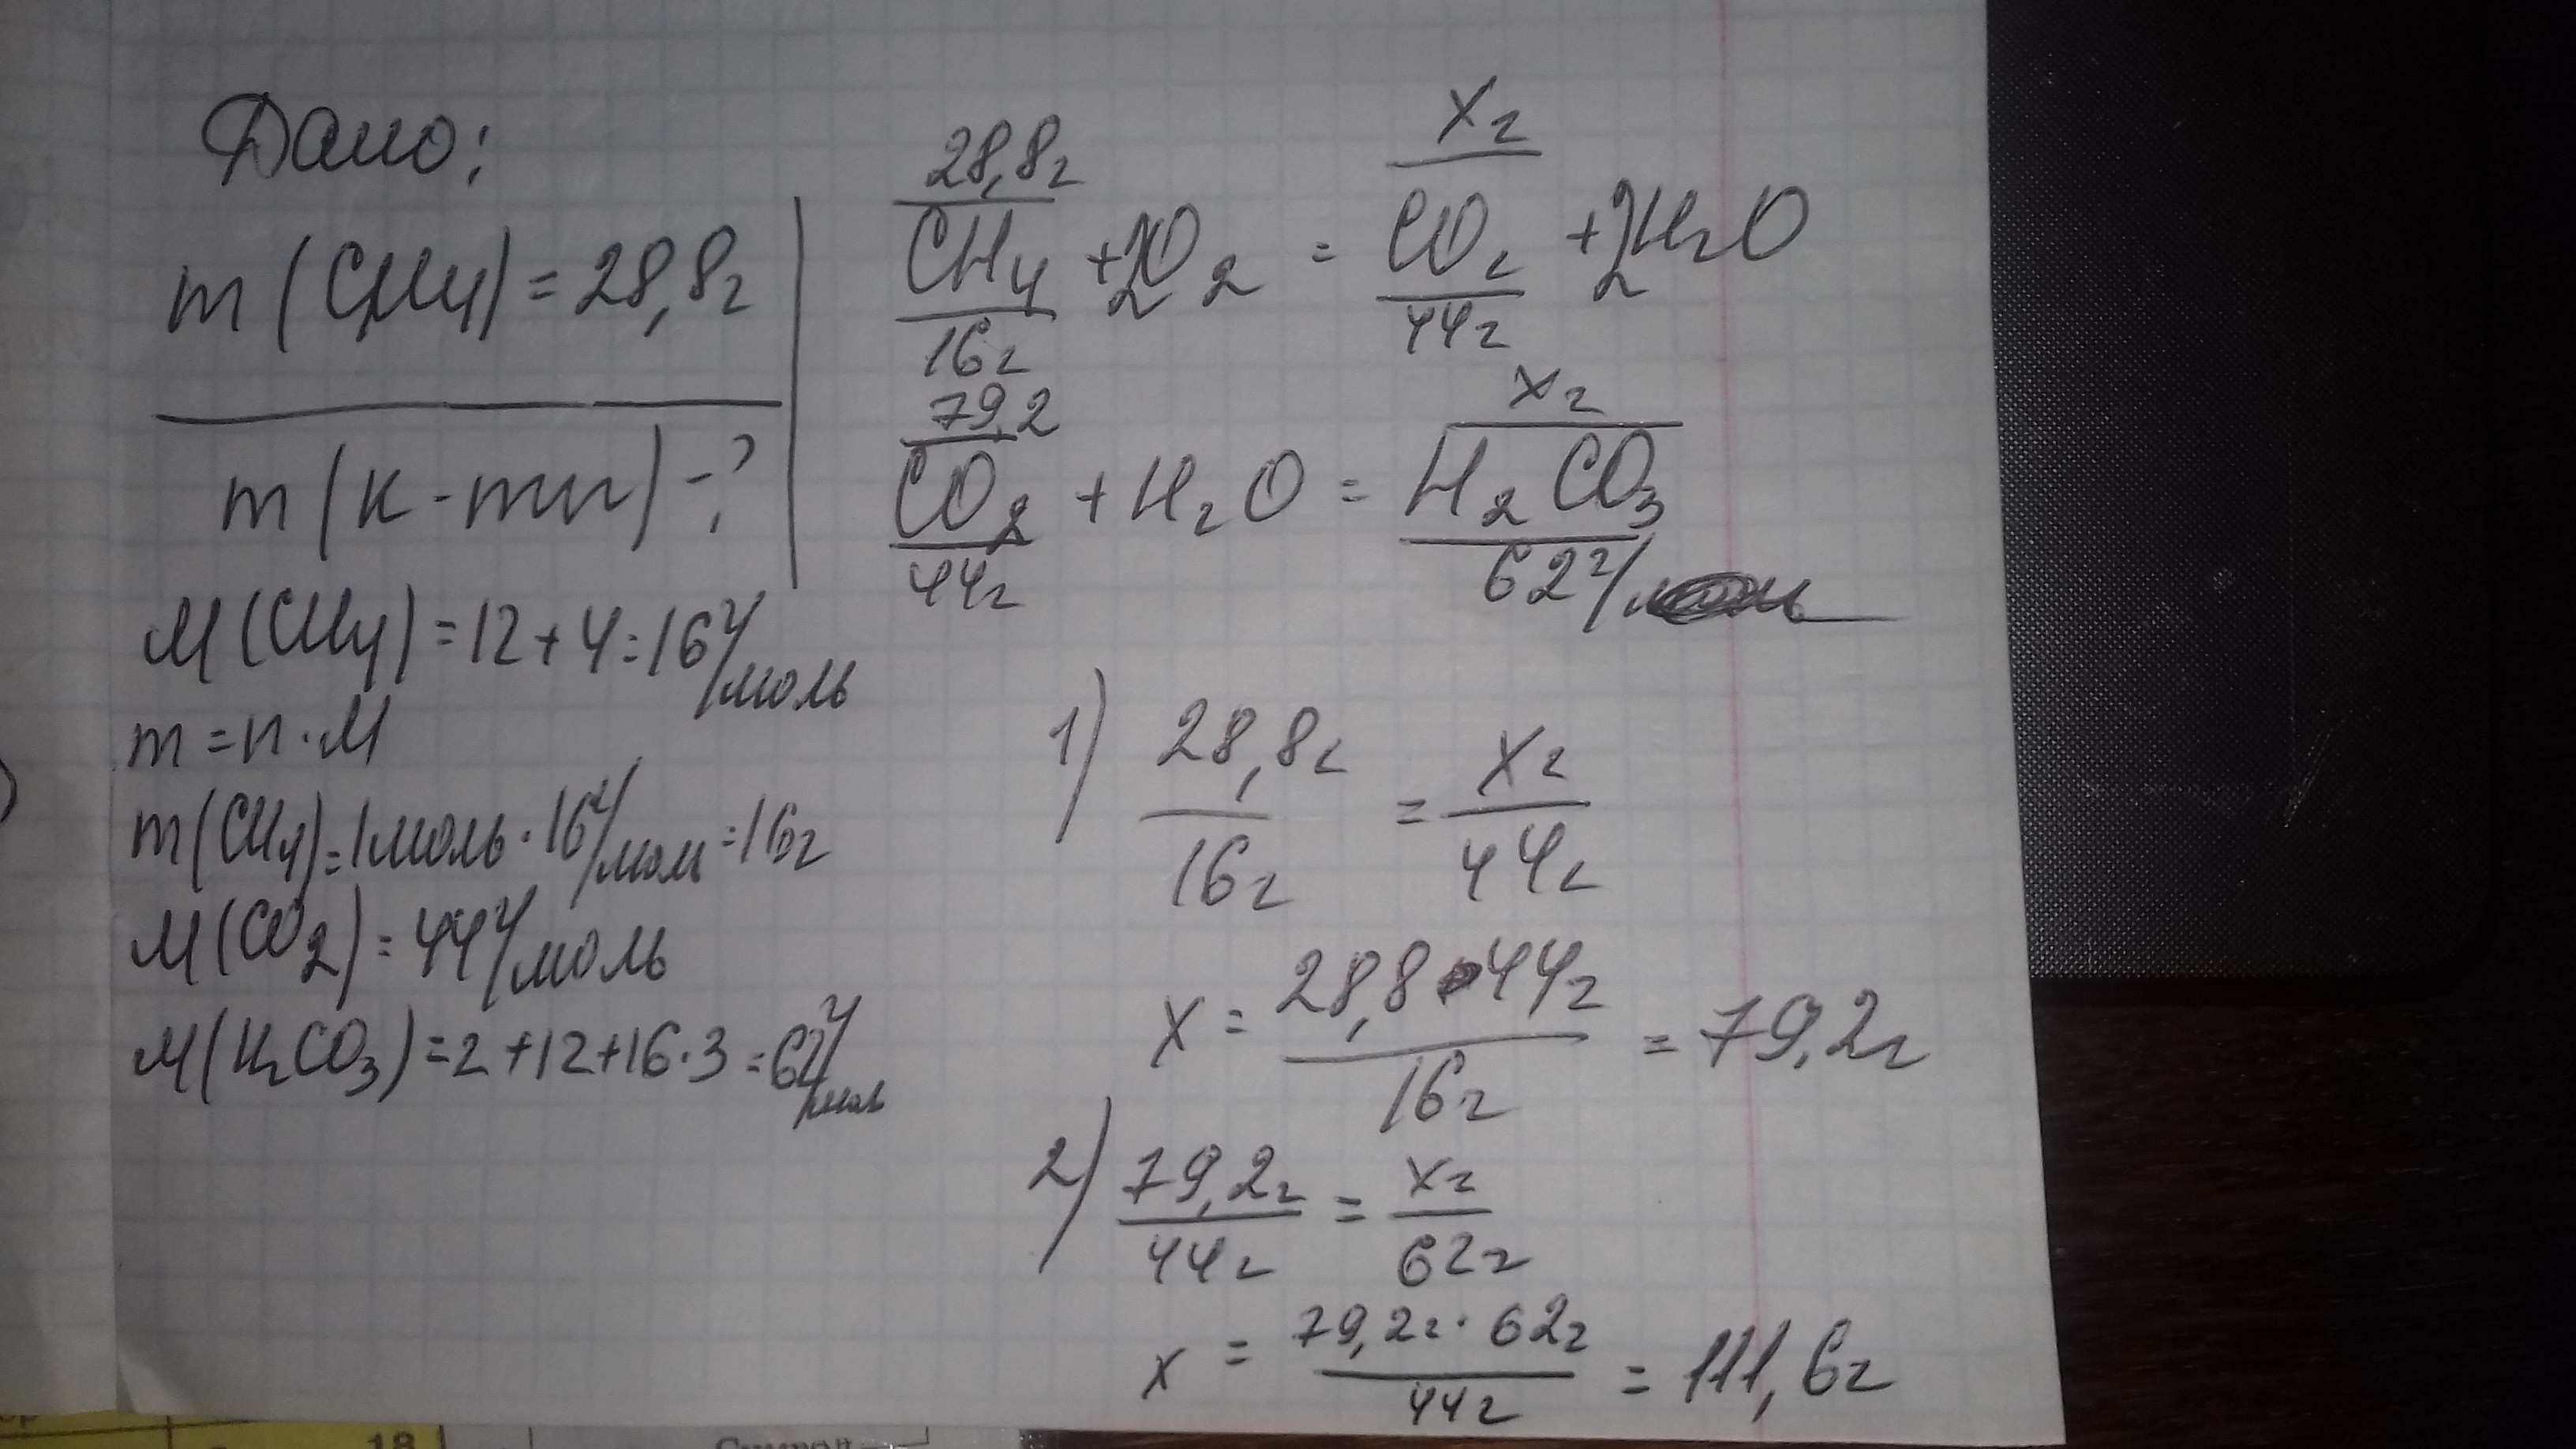 Дано:
m(CH4) = 28,8г
m(к-ты) - ?
M(CH4) = 12 + 4 = 16 г/моль
m = n · M
m(CH4) = 1 моль · 16 г/моль = 16г
M(CO2) = 44 г/моль
M(H2CO3) = 2 + 12 + 16 · 3 = 62 г/моль
28,8г xг
CH4 + 2O2 = CO2 + 2H2O
16г 44г
79,2 xг
CO2 + H2O = H2CO3
44г 62г/
1) 28,8г/16г = xг/44г
x = 28,8 · 44г/16г = 79,2г
2) 79,2г/44г = xг/62г
x = 79,2г · 62г/44г = 111,6г
18
Символ